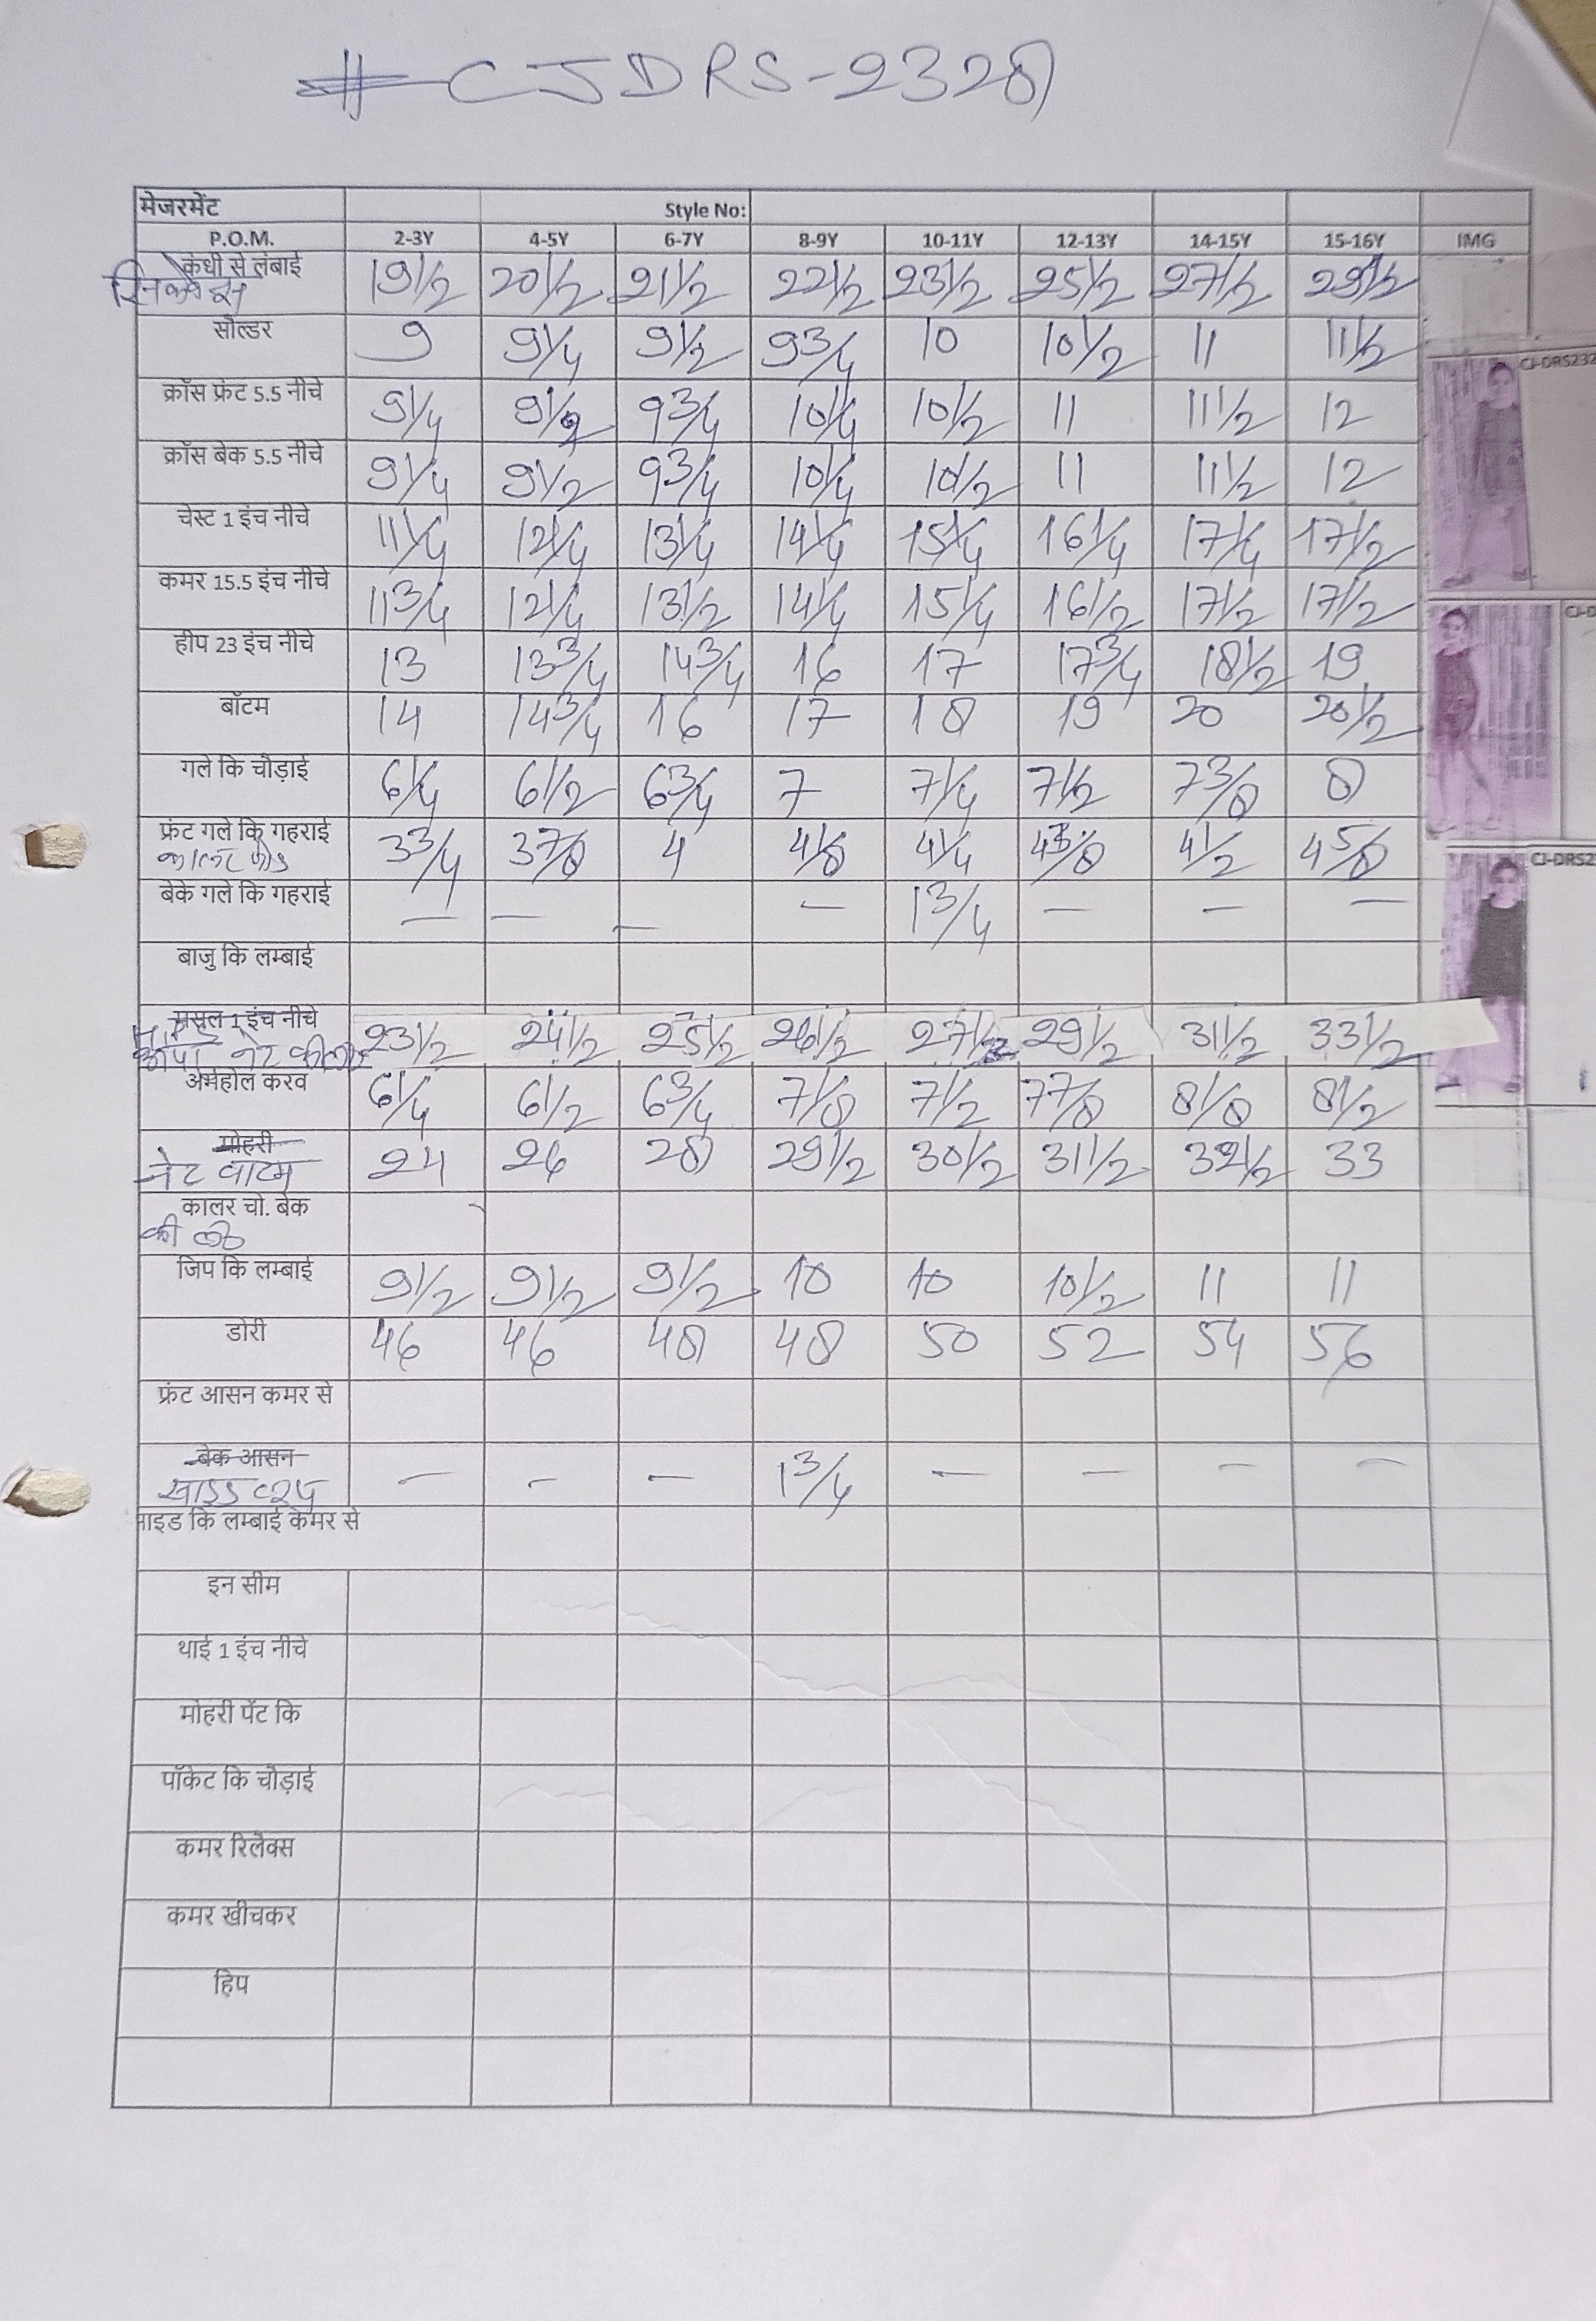 # CJDRS-2328
मेजरमेंट Style No:
P.O.M. 2-3Y 4-5Y 6-7Y 8-9Y 10-11Y 12-13Y 14-15Y 15-16Y IMG
कंधी से लंबाई 19 1/2 20 1/2 21 1/2 22 1/2 23 1/2 25 1/2 27 1/2 29 1/2
सौल्डर 9 9 1/4 9 1/2 9 3/4 10 10 1/2 11 11 1/2
CJ-DRS232
क्रॉस फ्रंट 5.5 नीचे 9 1/4 9 1/2 9 3/4 10 1/4 10 1/2 11 11 1/2 12
क्रॉस बेक 5.5 नीचे 9 1/4 9 1/2 9 3/4 10 1/4 10 1/2 11 11 1/2 12
चेस्ट 1 इंच नीचे 11 1/4 12 1/4 13 1/4 14 1/4 15 1/4 16 1/4 17 1/4 17 1/2
कमर 15.5 इंच नीचे 11 3/4 12 1/4 13 1/2 14 1/4 15 1/4 16 1/2 17 1/2 17 1/2
CJ-D
हीप 23 इंच नीचे 13 13 3/4 14 3/4 16 17 17 3/4 18 1/2 19
बॉटम 14 14 3/4 16 17 18 19 20 20 1/2
गले कि चौड़ाई 6 1/4 6 1/2 6 3/4 7 7 1/4 7 1/2 7 3/8 8
फ्रंट गले कि गहराई 3 3/4 3 7/8 4 4 1/8 4 1/4 4 3/8 4 1/2 4 5/8
CJ-DRS2
बेके गले कि गहराई — — — — 1 3/4 — — —
बाजु कि लम्बाई
मसल 1 इंच नीचे 23 1/2 24 1/2 25 1/2 26 1/2 27 1/2 29 1/2 31 1/2 33 1/2
अर्महोल करव 6 1/4 6 1/2 6 3/4 7 1/8 7 1/2 7 7/8 8 1/8 8 1/2
मोहरी 24 26 28 29 1/2 30 1/2 31 1/2 32 1/2 33
नेट बाटम
कालर चो. बेक
जिप कि लम्बाई 9 1/2 9 1/2 9 1/2 10 10 10 1/2 11 11
डोरी 46 46 48 48 50 52 54 56
फ्रंट आसन कमर से
बेक आसन — — — 1 3/4 — — — —
साइड
साइड कि लम्बाई कमर से
इन सीम
थाई 1 इंच नीचे
मोहरी पेंट कि
पॉकेट कि चौड़ाई
कमर रिलेक्स
कमर खीचकर
हिप